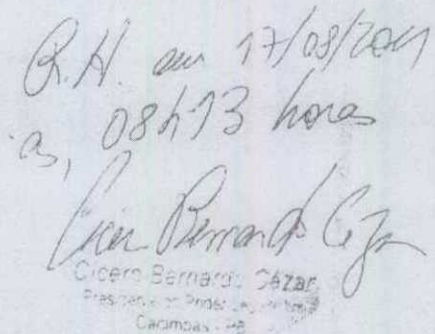 R.H. em 17/08/2011
as, 08h13 horas
Cicero Bernardo Cézar
Cicero Bernardo Cézar
Presidente do Poder Legislativo
Cacimbas - PB